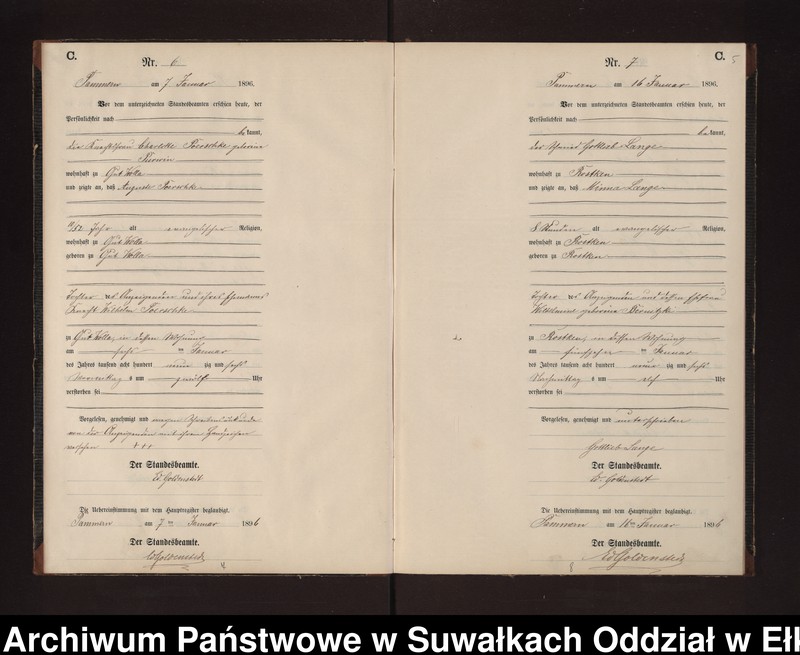 C.
Nr. 6
Tammern am 7 Januar 1896.
Vor dem unterzeichneten Standesbeamten erschien heute, der
Persönlichkeit nach
bekannt,
die Charlotte geborene
wohnhaft zu Gut Wolla
und zeigte an, daß Auguste
9/52 Jahr alt evangelischer Religion,
wohnhaft zu Gut Wolla
geboren zu Gut Wolla
Tochter der Anzeigenden und ihres Ehemannes
Knecht Wilhelm
zu Gut Wolla, in dessen Wohnung
am sechs ten Januar
des Jahres tausend acht hundert neun zig und sechs
Vormittag s um zwölf Uhr
verstorben sei
Vorgelesen, genehmigt und wegen Schreibensunkunde
von der Anzeigenden mit ihrem Handzeichen
versehen +++
Der Standesbeamte.
Ed. Goldenstedt
Die Uebereinstimmung mit dem Hauptregister beglaubigt.
Tammern am 7ten Januar 1896
Der Standesbeamte.
Ed Goldenstedt
C.
5
Nr. 7
Tammern am 16 Januar 1896.
Vor dem unterzeichneten Standesbeamten erschien heute, der
Persönlichkeit nach
bekannt,
der Gottlieb Lange
wohnhaft zu Rostken
und zeigte an, daß Minna Lange
8 Stunden alt evangelischer Religion,
wohnhaft zu Rostken
geboren zu Rostken
Tochter des Anzeigenden und dessen Ehefrau
Wilhelmine geborene
zu Rostken, in dessen Wohnung
am fünfzehn ten Januar
des Jahres tausend acht hundert neun zig und sechs
Nachmittag s um elf Uhr
verstorben sei
Vorgelesen, genehmigt und unterschrieben
Gottlieb Lange
Der Standesbeamte.
Ed. Goldenstedt
Die Uebereinstimmung mit dem Hauptregister beglaubigt.
Tammern am 16ten Januar 1896
Der Standesbeamte.
Ed Goldenstedt
Archiwum Państwowe w Suwałkach Oddział w Ełk